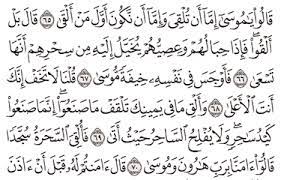 قَالُوا۟ يَـٰمُوسَىٰٓ إِمَّآ أَن تُلْقِىَ وَإِمَّآ أَن نَّكُونَ أَوَّلَ مَنْ أَلْقَىٰ ٦٥ قَالَ بَلْ
أَلْقُوا۟ ۖ فَإِذَا حِبَالُهُمْ وَعِصِيُّهُمْ يُخَيَّلُ إِلَيْهِ مِن سِحْرِهِمْ أَنَّهَا
تَسْعَىٰ ٦٦ فَأَوْجَسَ فِى نَفْسِهِۦ خِيفَةً مُّوسَىٰ ٦٧ قُلْنَا لَا تَخَفْ إِنَّكَ
أَنتَ ٱلْأَعْلَىٰ ٦٨ وَأَلْقِ مَا فِى يَمِينِكَ تَلْقَفْ مَا صَنَعُوٓا۟ ۖ إِنَّمَا صَنَعُوا۟
كَيْدُ سَـٰحِرٍ ۖ وَلَا يُفْلِحُ ٱلسَّاحِرُ حَيْثُ أَتَىٰ ٦٩ فَأُلْقِىَ ٱلسَّحَرَةُ سُجَّدًا
قَالُوٓا۟ ءَامَنَّا بِرَبِّ هَـٰرُونَ وَمُوسَىٰ ٧٠ قَالَ ءَامَنتُمْ لَهُۥ قَبْلَ أَنْ ءَاذَنَ